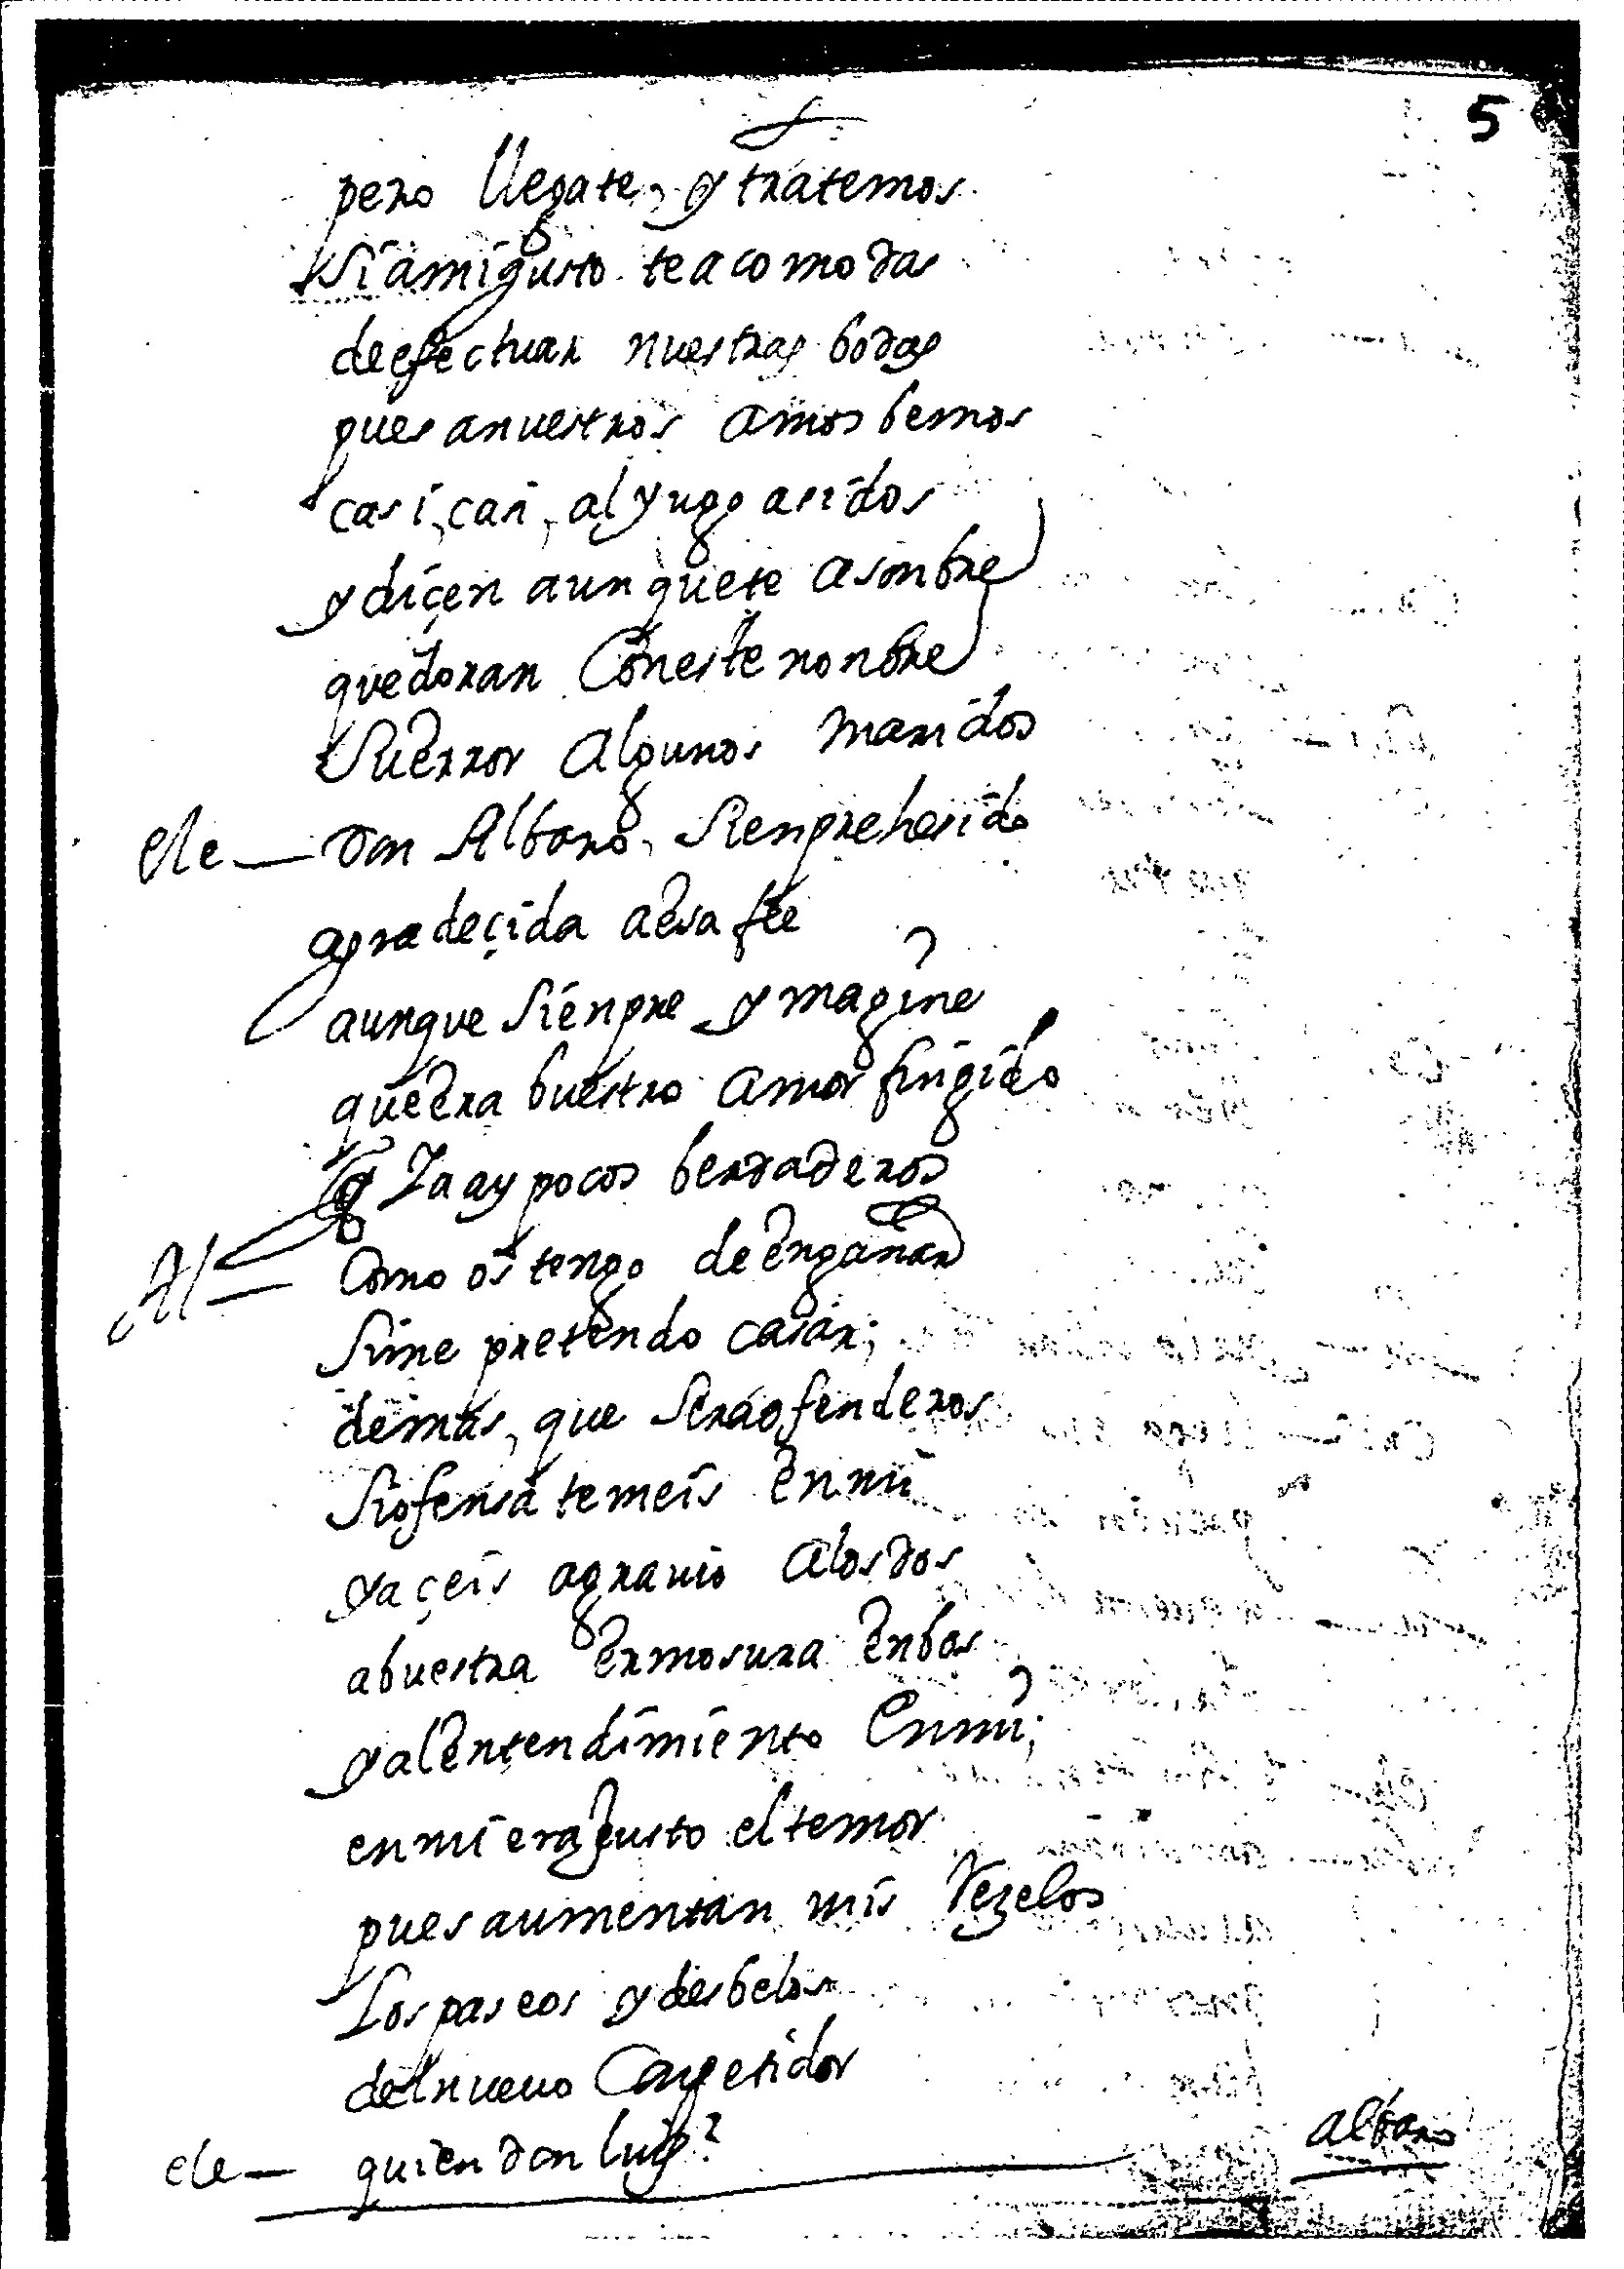 5
pero llegate, y tratemos
si a mi gusto te acomodas
de efectuar nuestras bodas
pues a nuestros amos bemos
casi, casi, al yugo asidos
y diçen aunque te asonbre
que doran con este nonbre
su error algunos maridos
ele — don Albaro, sienpre he sido
agradeçida a esa fee
aunque sienpre ymagine
que era buestro amor fingido
q ya ay pocos berdaderos
Al — Como os tengo de engañar
si me pretendo casar;
demas, que sera ofenderos
si ofensa temeis en mi
y açeis agrauio a los dos
a buestra ermosura en bos
y al entendimiento en mi;
en mi era justo el temor
pues aumentan mis rezelos
los paseos y desbelos
del nueuo
ele — quien don luis?
albaro